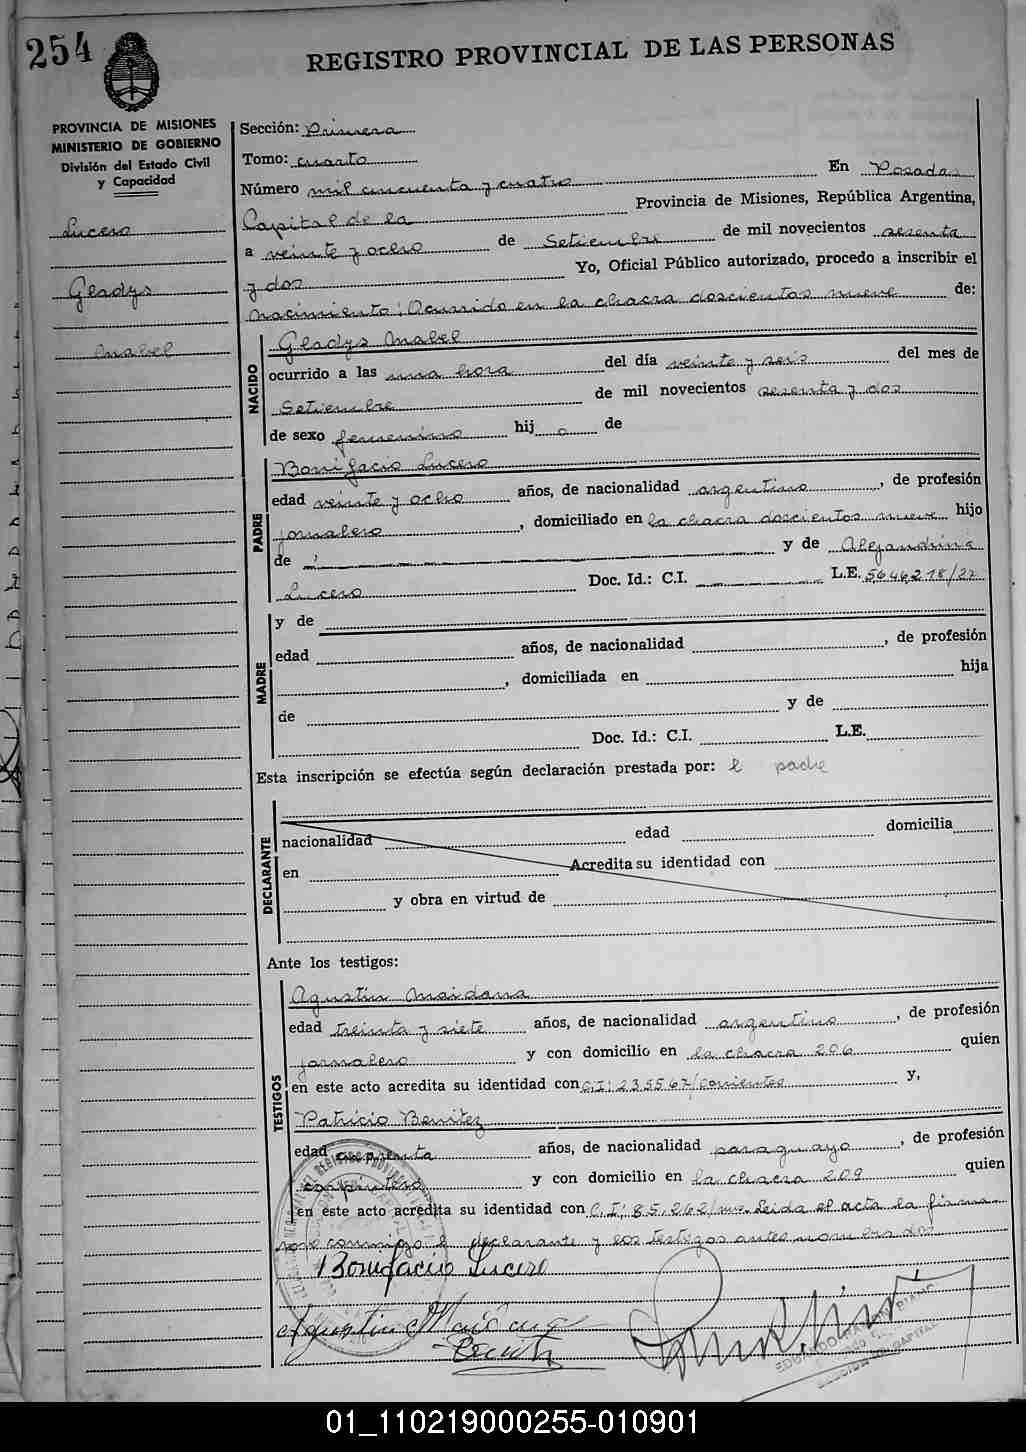 254
REGISTRO PROVINCIAL DE LAS PERSONAS
PROVINCIA DE MISIONES
MINISTERIO DE GOBIERNO
División del Estado Civil
y Capacidad
Lucero
Gladys
Mabel
Sección: Primera
Tomo: cuarto
Número mil cincuenta y cuatro En Posadas
Capital de la Provincia de Misiones, República Argentina,
a veinte y ocho de Setiembre de mil novecientos sesenta
y dos Yo, Oficial Público autorizado, procedo a inscribir el
nacimiento: Ocurrido en la chacra doscientos nueve de:
NACIDO
Gladys Mabel
ocurrido a las una hora del día veinte y seis del mes de
Setiembre de mil novecientos sesenta y dos
de sexo femenino hij a de
PADRE
Bonifacio Lucero
edad veinte y ocho años, de nacionalidad argentino, de profesión
jornalero, domiciliado en la chacra doscientos nueve hijo
de y de Alejandrina
Lucero Doc. Id.: C.I. L.E. 5646218/27
MADRE
y de
edad años, de nacionalidad , de profesión
, domiciliada en hija
de y de
Doc. Id.: C.I. L.E.
Esta inscripción se efectúa según declaración prestada por: el padre
DECLARANTE
nacionalidad edad domicilia
en Acredita su identidad con
y obra en virtud de
Ante los testigos:
TESTIGOS
Agustin Maidana
edad treinta y siete años, de nacionalidad argentino, de profesión
jornalero y con domicilio en la chacra 206 quien
en este acto acredita su identidad con C.I: 235567/Corrientes y,
Patricio Benitez
edad cuarenta años, de nacionalidad paraguayo, de profesión
carpintero y con domicilio en la chacra 209 quien
en este acto acredita su identidad con C.I: 85.262/ms. Leida el acta la firma
ron conmigo el declarante y los testigos antes nombrados
Bonifacio Lucero
Agustin Maidana
Benitez
01_110219000255-010901